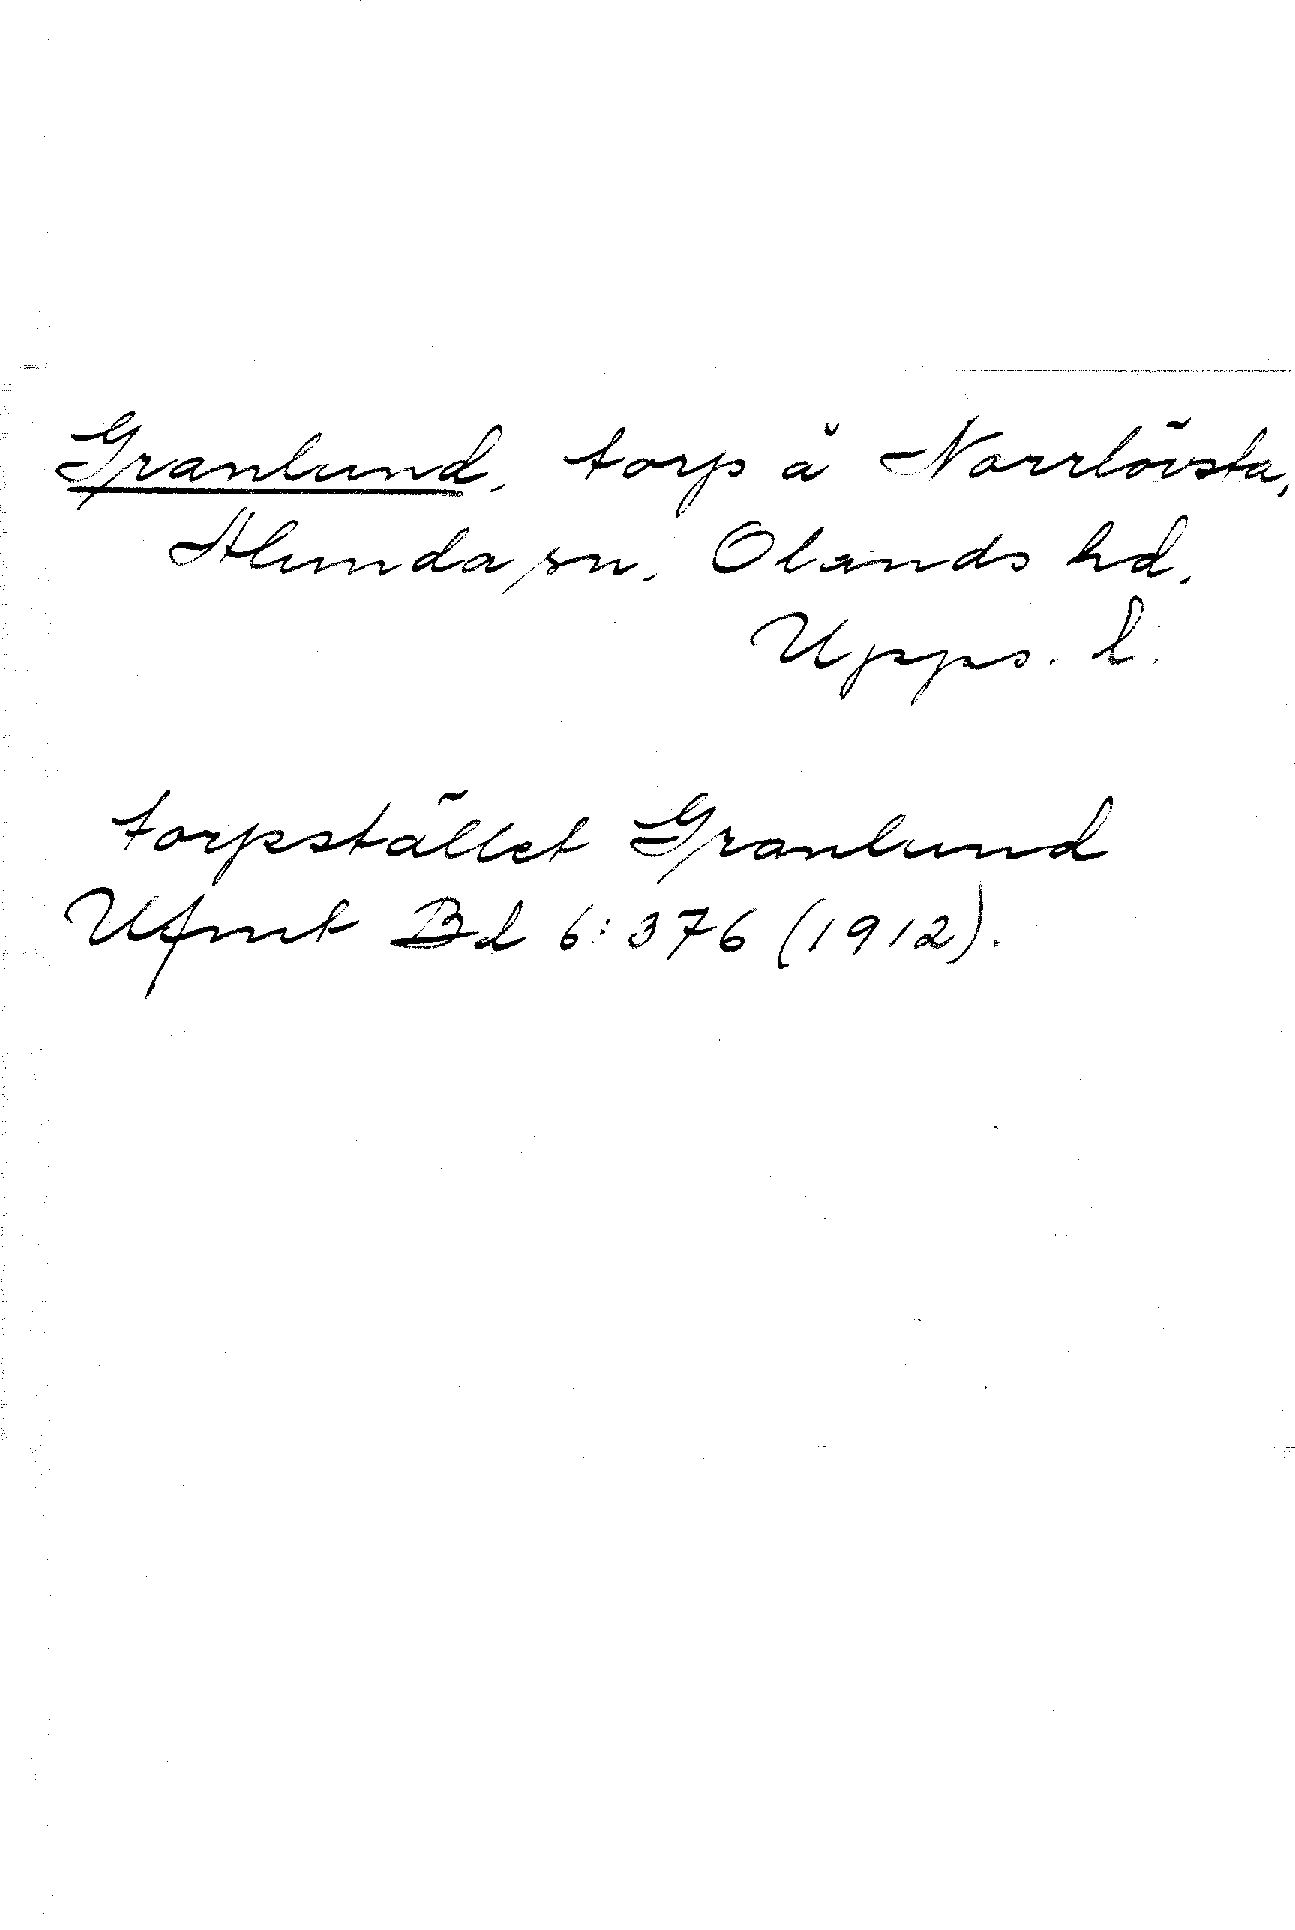 Granlund, torp å Norrlövsta,
Alunda sn, Olands hd,
Upps. l.
torpstället Granlund
Ufmt Bd 6:376 (1912).